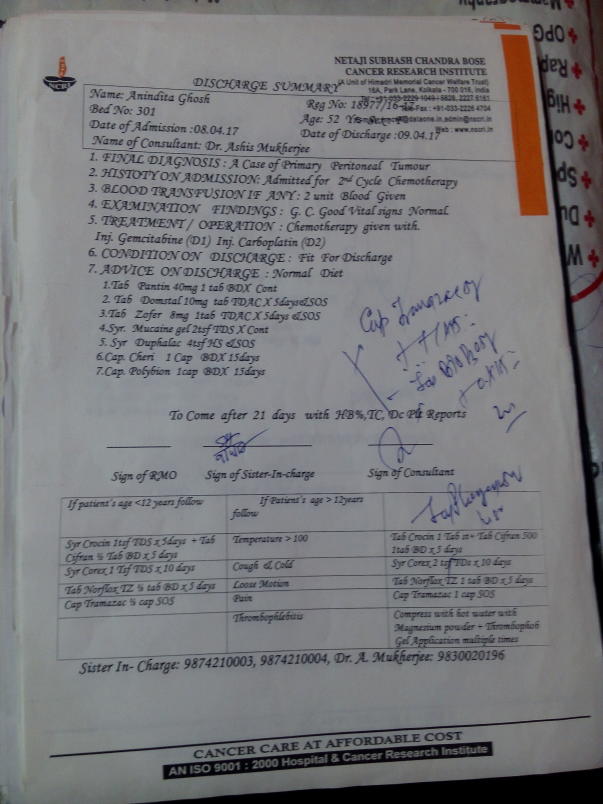 NCRI
NETAJI SUBHASH CHANDRA BOSE
CANCER RESEARCH INSTITUTE
(A Unit of Himadri Memorial Cancer Welfare Trust)
16A, Park Lane, Kolkata - 700 016, India
DISCHARGE SUMMARY
Name: Anindita Ghosh
Reg No: 18977/16-17
Bed No: 301
Age: 52
Date of Admission :08.04.17
Date of Discharge :09.04.17
Web : www.ncri.in
Name of Consultant: Dr. Ashis Mukherjee
1. FINAL DIAGNOSIS : A Case of Primary Peritoneal Tumour
2. HISTOTY ON ADMISSION: Admitted for 2nd Cycle Chemotherapy
3. BLOOD TRANSFUSION IF ANY : 2 unit Blood Given
4. EXAMINATION FINDINGS : G. C. Good Vital signs Normal.
5. TREATMENT / OPERATION : Chemotherapy given with.
Inj. Gemcitabine (D1) Inj. Carboplatin (D2)
6. CONDITION ON DISCHARGE : Fit For Discharge
7. ADVICE ON DISCHARGE : Normal Diet
1.Tab Pantin 40mg 1 tab BDX Cont
2. Tab Domstal 10mg tab TDAC X 5days&SOS
3.Tab Zofer 8mg 1tab TDAC X 5days &SOS
4.Syr. Mucaine gel 2tsf TDS X Cont
5. Syr Duphalac 4tsf HS &SOS
6.Cap. Cheri 1 Cap BDX 15days
7.Cap. Polybion 1cap BDX 15days
To Come after 21 days with HB%,TC, Dc Plt Reports
Sign of RMO Sign of Sister-In-charge Sign of Consultant
If patient's age <12 years follow
If Patient's age > 12years follow
Syr Crocin 1tsf TDS x 5days + Tab Cifran ½ Tab BD x 5 days
Temperature > 100
Tab Crocin 1 Tab st+ Tab Cifran 500 1tab BD x 5 days
Syr Corex 1 Tsf TDS x 10 days
Cough & Cold
Syr Corex 2 tsf TDs x 10 days
Tab Norflox TZ ½ tab BD x 5 days
Loose Motion
Tab Norflox TZ 1 tab BD x 5 days
Cap Tramazac ½ cap SOS
Pain
Cap Tramazac 1 cap SOS
Thrombophlebitis
Compress with hot water with
Magnesium powder + Thrombophob
Gel Application multiple times
Sister In- Charge: 9874210003, 9874210004, Dr. A. Mukherjee: 9830020196
CANCER CARE AT AFFORDABLE COST
AN ISO 9001 : 2000 Hospital & Cancer Research Institute
OPG